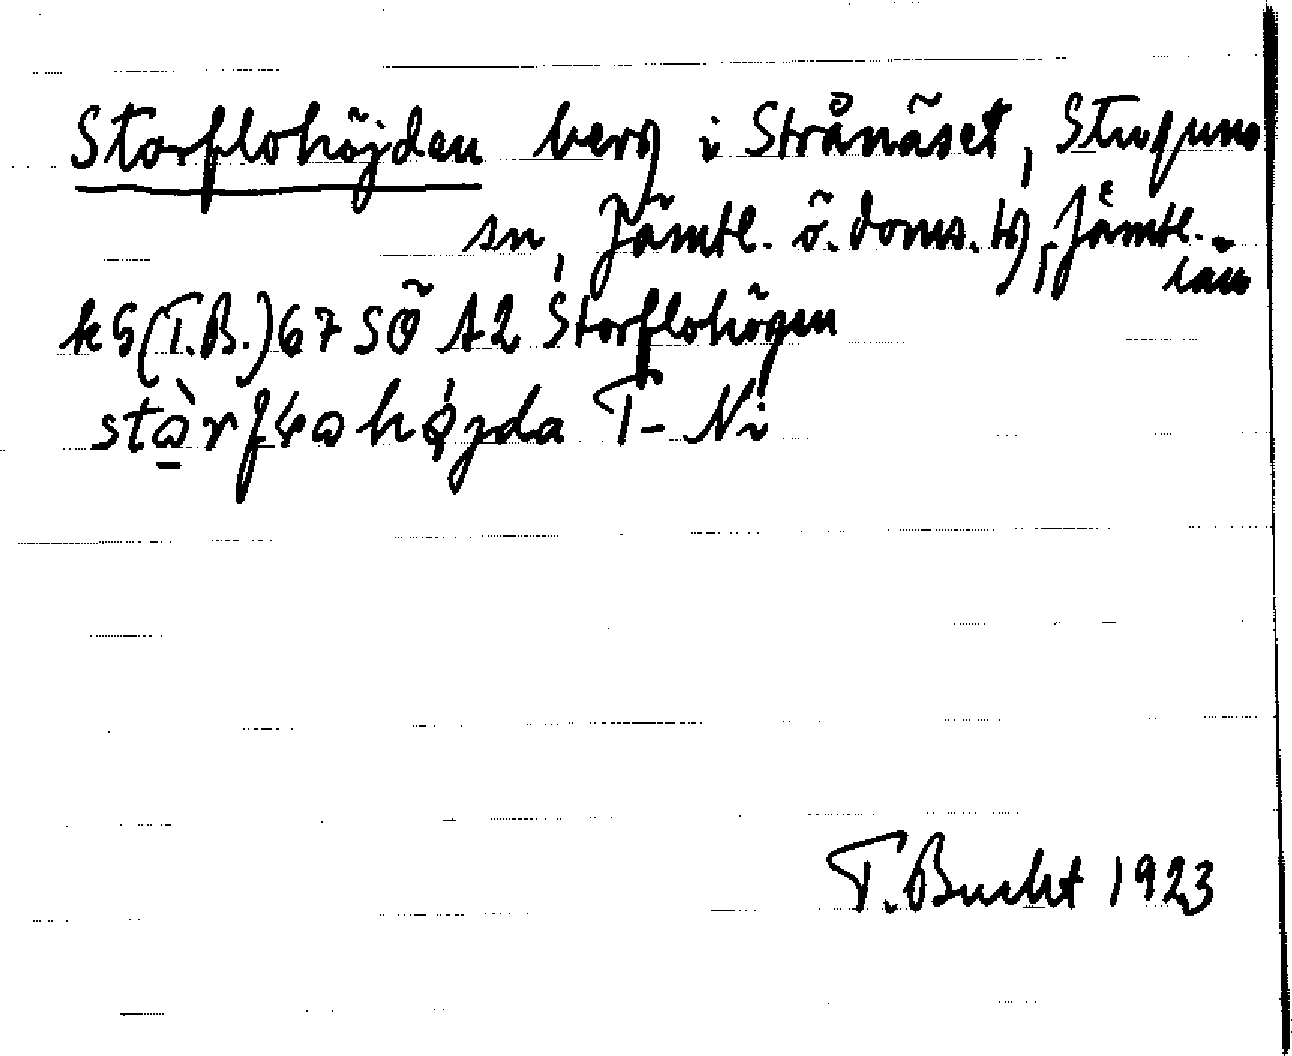 Storflohöjden berg i Strånäset, Stuguns
sn, Jämtl. ö. doms. tg, Jämtl.
län
k G (T.B.) 67 SÖ A2 Storflohögen
T-Ni
T. Bucht 1923